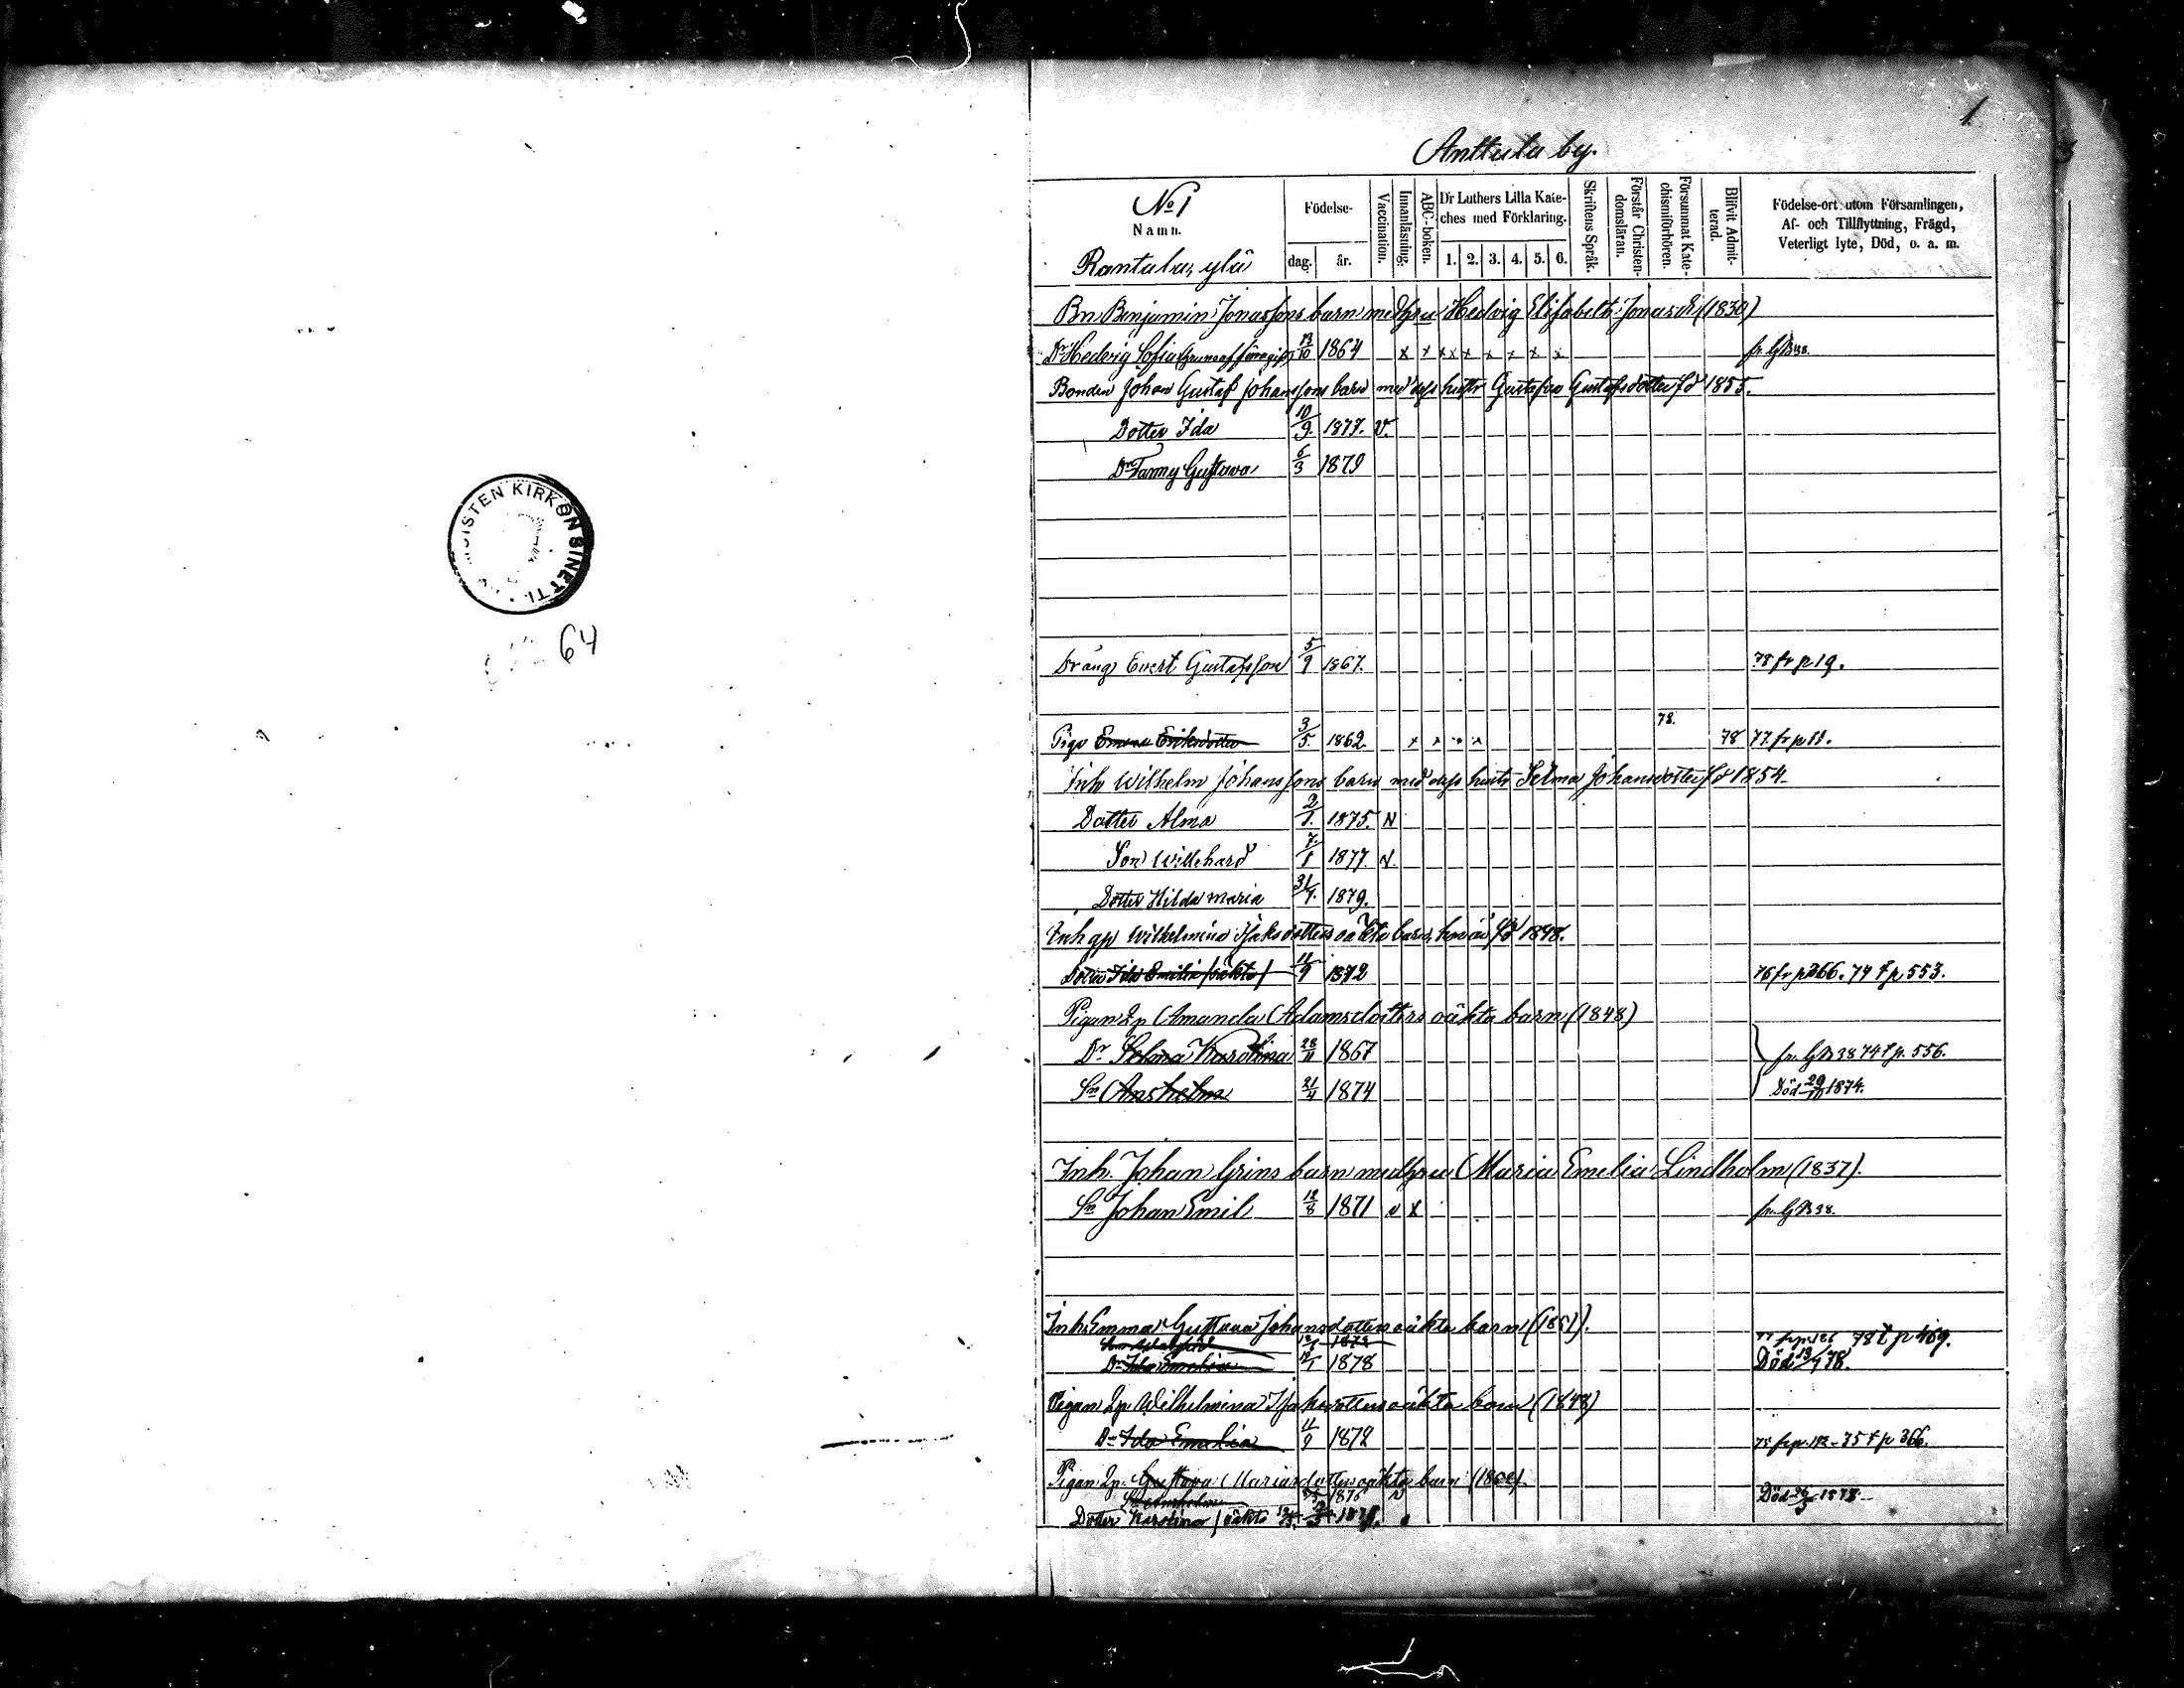 1.
Anttula by.
No 1
Namn.
Rantala, ylä
Födelse-
dag. år.
Vaccination.
Innanläsning.
ABC-boken.
Dr Luthers Lilla Kate-
ches med Förklaring.
1. 2. 3. 4. 5. 6.
Skriftens Språk.
Förstår Christen-
domsläran.
Försummat Kate-
chismiförhören.
Blifvit Admit-
terad.
Födelse-ort utom Församlingen,
Af- och Tillflyttning, Frägd,
Veterligt lyte, Död, o. a. m.
Bn Benjamin Jonassons barn med hu Hedvig Elisabeth Jonasdr (1830)
Dr Hedvig Sofia 13/10 1864 x x x x x x x x x
Bonden Johan Gustaf Johanssons barn med dess hustr Gustafva Gustafsdotter fd 1855.
Dotter Ida 10/9. 1877. V.
Dr Fanny Gustava 6/3 1879
STEN KIRKON SINETTI
64
Dräng Evert Gustafsson 5/9 1867. 78 fr p 19.
Pige Emma Eriksdotter 3/5. 1862 x x x x 78. 78 77 fr p 11.
Inh Wilhelm Johanssons barn med dess hustr Selma Johansdotter fd 1854
Dotter Alma 2/1. 1875. N
Son Willehard 7/1 1877. N.
Dotter Hilda Maria 31/7. 1879.
Inh qp Wilhelmina Isaksdotters oäkta barn, fd 1848.
Dotter Ida Emilia /oäkta/ 11/9 1872 76 fr p 366. 77 t p 553.
Pigan Qp Amanda Adamsdotters oäkta barn (1848)
Dr Selma Karolina 28/11 1867 fr. GB 38 74 t p. 556.
Sn Anshelm 21/4 1874 Död 29/10 1874.
Inh. Johan Grins barn med hu Maria Emelia Lindholm (1837).
Sn Johan Emil 12/8 1871 v x fr. GB 38.
Inh Emma Gustava Johansdotters oäkta barn (1851).
78 t p 469.
Dr Ida Emelia 1878 Död 13/7 78.
Pigan Qp. Wilhelmina Isaksdotters oäkta barn (1848)
Dr Ida Emelia 11/9 1872 75 t p 366.
Pigan Qp. Gustava Mariasdotters oäkta barn
Sn Anshelm 1876 N Död 1878
Dotter Karolina /oäkta